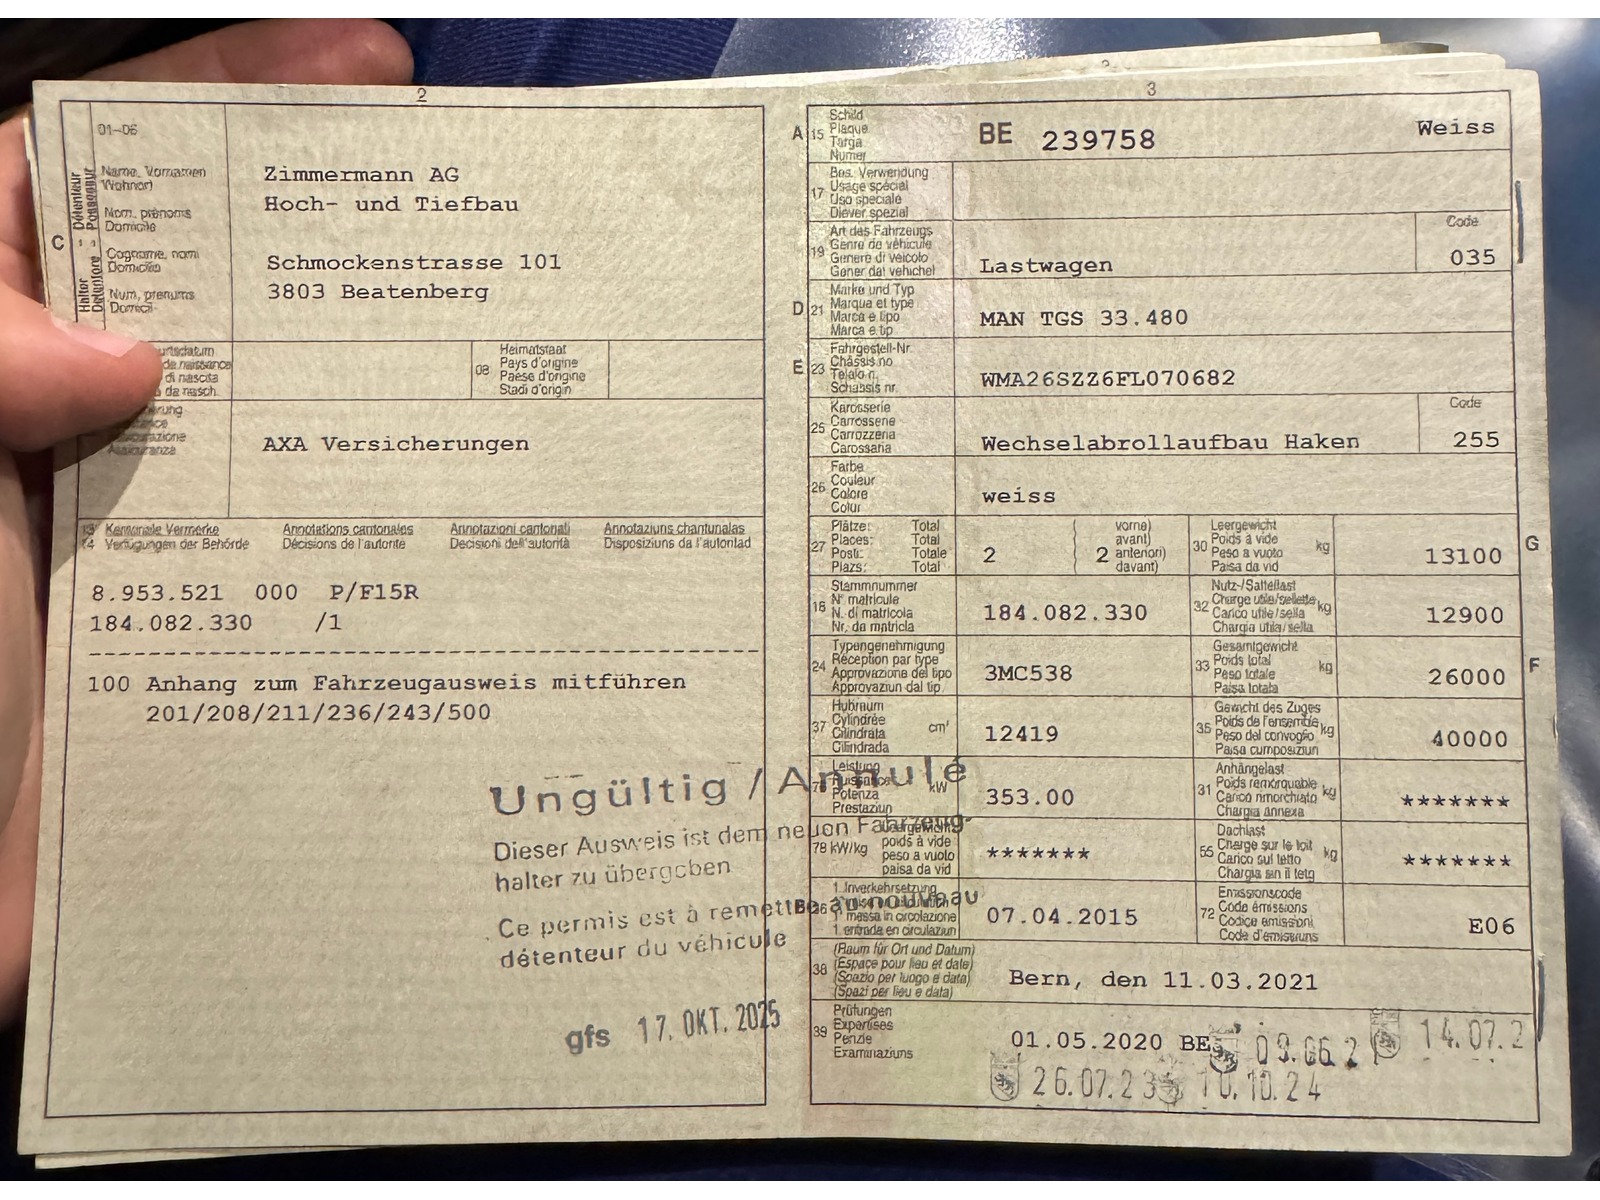 2
01-06
Name, Vornamen
Wohnort
Nom, prénoms
Domicile
Cognome, nomi
Domicilio
Num, prenums
Domicil
C
Halter
Détenteur
Detentore
Possessur
Zimmermann AG
Hoch- und Tiefbau
Schmockenstrasse 101
3803 Beatenberg
de naissance
di nascita
da nasch.
08
Heimatstaat
Pays d'origine
Paese d'origine
Stadi d'origin
AXA Versicherungen
13 Kantonale Vermerke Annotations cantonales Annotazioni cantonali Annotaziuns chantunalas
14 Verfügungen der Behörde Décisions de l'autorité Decisioni dell'autorità Disposiziuns da l'autoritad
8.953.521 000 P/F15R
184.082.330 /1
100 Anhang zum Fahrzeugausweis mitführen
201/208/211/236/243/500
Ungültig / Annulé
Dieser Ausweis ist dem neuen Fahrzeug-
halter zu übergeben
Ce permis est à remettre au nouveau
détenteur du véhicule
gfs 17. OKT. 2025
3
A 15
Schild
Plaque
Targa
Numer
BE 239758 Weiss
17
Bes. Verwendung
Usage spécial
Uso speciale
Diever spezial
19
Art des Fahrzeugs
Genre de véhicule
Genere di veicolo
Gener dal vehichel
Lastwagen
Code
035
D 21
Marke und Typ
Marque et type
Marca e tipo
Marca e tip
MAN TGS 33.480
E 23
Fahrgestell-Nr.
Châssis no
Telaio n.
Schassis nr.
WMA26SZZ6FL070682
25
Karosserie
Carrosserie
Carrozzeria
Carossaria
Wechselabrollaufbau Haken
Code
255
26
Farbe
Couleur
Colore
Colur
weiss
27
Plätze: Total
Places: Total
Posti: Totale
Plazs: Total
2
2
vorne)
avant)
anteriori)
davant)
30
Leergewicht
Poids à vide
Peso a vuoto
Paisa da vid
kg
13100
G
18
Stammnummer
N° matricule
N. di matricola
Nr. da matricla
184.082.330
32
Nutz-/Sattellast
Charge utile/sellette
Carico utile/sella
Chargia utila/sella
kg
12900
24
Typengenehmigung
Réception par type
Approvazione del tipo
Approvaziun dal tip
3MC538
33
Gesamtgewicht
Poids total
Peso totale
Paisa totala
kg
26000
F
37
Hubraum
Cylindrée
Cilindrata
Cilindrada
cm³
12419
35
Gewicht des Zuges
Poids de l'ensemble
Peso del convoglio
Paisa cumposiziun
kg
40000
Leistung
Puissance
Potenza
Prestaziun
kW
353.00
31
Anhängelast
Poids remorquable
Carico rimorchiato
Chargia annexa
kg
*******
78 kW/kg
Leergewicht
poids à vide
peso a vuoto
paisa da vid
*******
55
Dachlast
Charge sur le toit
Carico sul tetto
Chargia sin il tetg
kg
*******
B 36
1. Inverkehrsetzung
1. messa in circolazione
1. entrada en circulaziun
07.04.2015
72
Emissionscode
Code émissions
Codice emissioni
Code d'emissiuns
E06
38
(Raum für Ort und Datum)
(Espace pour lieu et date)
(Spazio per luogo e data)
(Spazi per lieu e data)
Bern, den 11.03.2021
39
Prüfungen
Expertises
Perizie
Examinaziuns
01.05.2020 BE 14.07.2
26.07.23 10.10.24